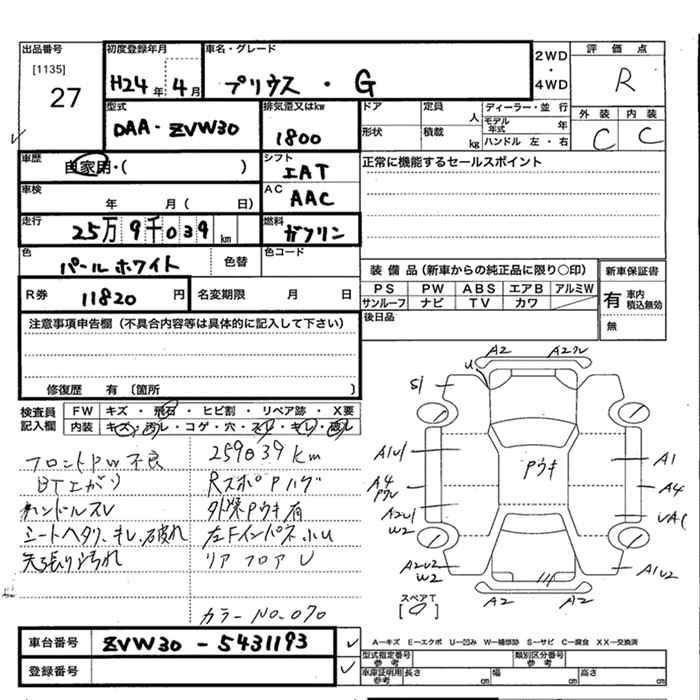 出品番号
[1135]
27
初度登録年月
H24年 4月
車名・グレード
プリウス・G
2WD
・
4WD
評価点
R
外装 内装
C C
型式
DAA-ZVW30
排気量又はkw
1800
ドア 定員 人
形状 積載 kg
ディーラー・並行
モデル年式 年
ハンドル 左・右
車歴
自家用・( )
シフト
IAT
車検
年 月( 日)
AC
AAC
走行
25万9千039km
燃料
ガソリン
色
パールホワイト
色替
色コード
R券
11820円
名変期限 月 日
正常に機能するセールスポイント
装備品(新車からの純正品に限り○印)
PS PW ABS エアB アルミW
サンルーフ ナビ TV カワ
後日品
新車保証書
有 車内積込無効
無
注意事項申告欄(不具合内容等は具体的に記入して下さい)
修復歴 有〔箇所 〕
検査員記入欄
FW キズ・飛石・ヒビ割・リペア跡・X要
内装 キズ・汚レ・コゲ・穴・スレ・キレ・破レ
フロントPW不良 259039km
BTエガリ RスポPハゲ
ハンドルスレ 外装Pウキ有
シートヘタリ、キレ、破れ 左Fインパネ小U
天張り汚れ リアフロアU
カラーNO-070
A2 A2クレ
U
S1
A1U1
A4
Pクレ
A2U1
W2
A2U2
W2
Pウキ
A1
A4
UA(
A1U2
スペアT
[0]
A2 A2
車台番号
ZVW30-5431193
登録番号
A－キズ E－エクボ U－凹み W－補修跡 S－サビ C－腐食 XX－交換済
型式指定番号 参考
類別区分番号 参考
車庫証明用 参考 長さ cm 幅 cm 高さ cm